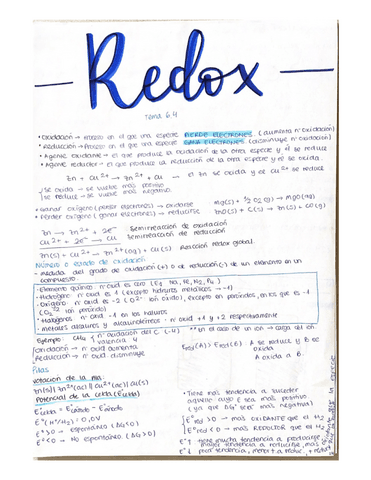 Redox
Tema 6.4
• Oxidación → Proceso en el que una especie PIERDE ELECTRONES. (aumenta nº oxidación)
• Reducción → Proceso en el que una especie GANA ELECTRONES (disminuye nº oxidación)
• Agente oxidante → el que produce la oxidación de la otra especie y él se reduce
• Agente reductor → el que produce la reducción de la otra especie y él se oxida.
Zn + Cu²⁺ → Zn²⁺ + Cu — el Zn se oxida y el Cu²⁺ se reduce
se oxida → se vuelve más positivo
se reduce → se vuelve más negativo
• Ganar oxígeno (perder electrones) → oxidarse
Mg(s) + ½ O₂(g) → MgO(s)
• Perder oxígeno (ganar electrones) → reducirse
Zn → Zn²⁺ + 2e⁻ Semireacción de oxidación
Cu²⁺ + 2e⁻ → Cu Semireacción de reducción
Zn(s) + Cu²⁺ → Zn²⁺(aq) + Cu(s) Reacción redox global.
Número o estado de oxidación
- medida del grado de oxidación (+) o de reducción (-) de un elemento en un
compuesto.
• Elemento químico: nº oxid es cero (Ej. Na, Fe, H₂, P₄)
• Hidrógeno: nº oxid es 1 (excepto haluros metálicos → -1
• Oxígeno: nº oxid es -2 (O²⁻ ion óxido), excepto en peróxidos, en los que es -1
(O₂²⁻ ion peróxido)
• Halógenos: nº oxid -1 en los haluros
• Metales alcalinos y alcalinotérreos: nº oxid +1 y +2 respectivamente
Ejemplo: CH₄ nº oxidación del C (-4)
valencia 4
Oxidación → nº oxid aumenta
Reducción → nº oxid. disminuye
** En el caso de un ion → carga del ion
Ered(A) > Ered(B) A se reduce y B se
oxida
A oxida a B.
Pilas
Notación de la pila:
Zn(s)|Zn²⁺(ac)||Cu²⁺(ac)|Cu(s)
Potencial de la celda (E°celda)
E°celda = E°cátodo - E°ánodo
E° (H⁺/H₂) = 0,0V
E° > 0 → espontáneo (ΔG<0)
E° < 0 → No espontáneo (ΔG>0)
• Tiene más tendencia a suceder
aquello cuyo E° sea más positivo
(ya que ΔG° será más negativa)
E°red > 0 → más OXIDANTE que el H₂
E°red < 0 → más REDUCTOR que el H₂